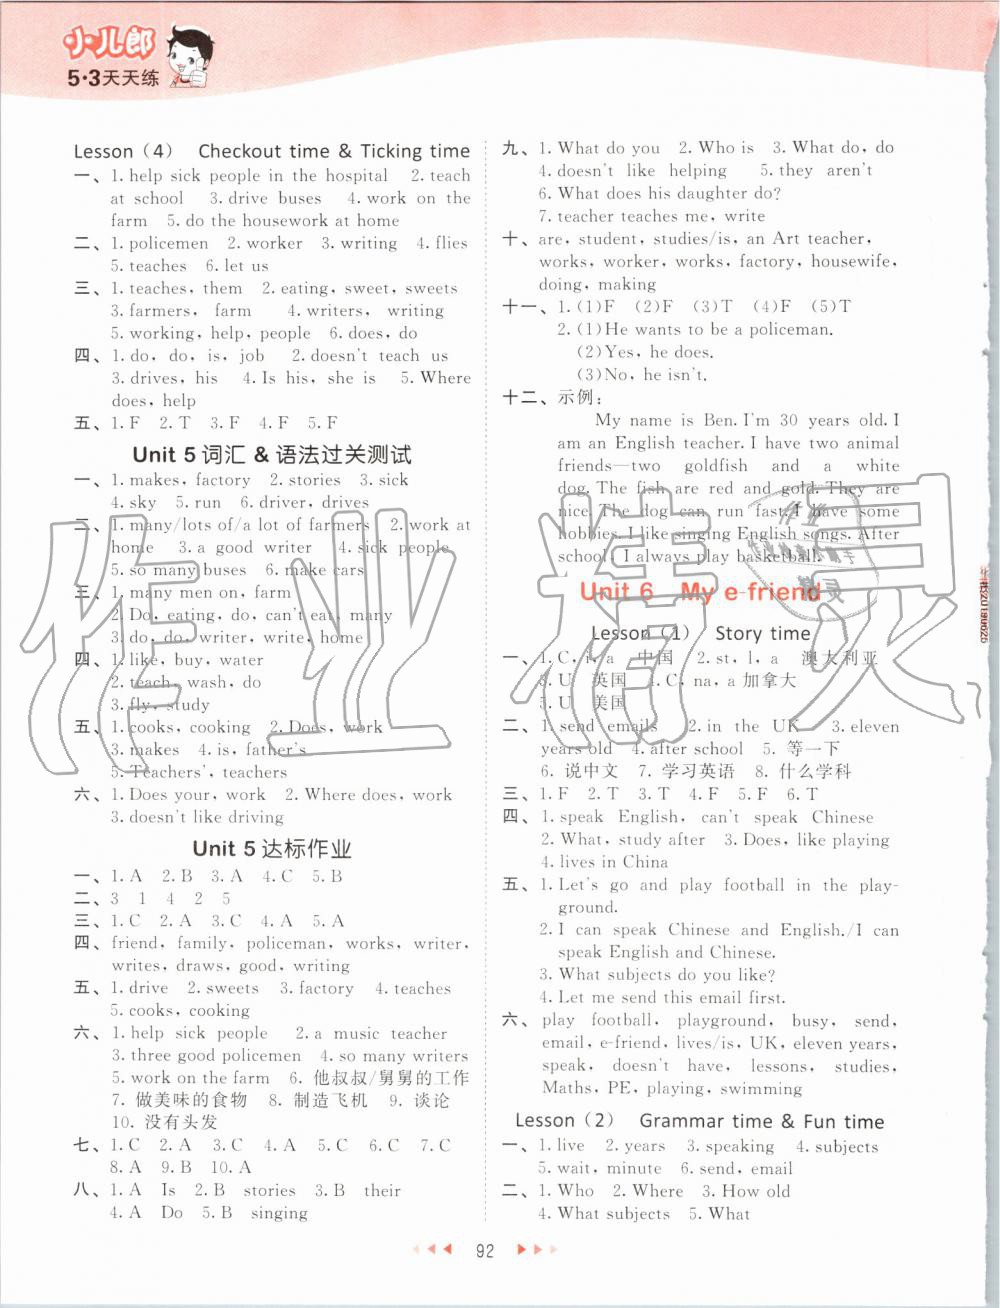 小儿郎
5·3天天练
Lesson（4） Checkout time & Ticking time
一、1. help sick people in the hospital 2. teach
at school 3. drive buses 4. work on the
farm 5. do the housework at home
二、1. policemen 2. worker 3. writing 4. flies
5. teaches 6. let us
三、1. teaches, them 2. eating, sweet, sweets
3. farmers, farm 4. writers, writing
5. working, help, people 6. does, do
四、1. do, do, is, job 2. doesn't teach us
3. drives, his 4. Is his, she is 5. Where
does, help
五、1. F 2. T 3. F 4. F 5. F
Unit 5 词汇 & 语法过关测试
一、1. makes, factory 2. stories 3. sick
4. sky 5. run 6. driver, drives
二、1. many/lots of/a lot of farmers 2. work at
home 3. a good writer 4. sick people
5. so many buses 6. make cars
三、1. many men on, farm
2. Do, eating, do, can't eat, many
3. do, do, writer, write, home
四、1. like, buy, water
2. teach, wash, do
3. fly, study
五、1. cooks, cooking 2. Does, work
3. makes 4. is, father's
5. Teachers', teachers
六、1. Does your, work 2. Where does, work
3. doesn't like driving
Unit 5 达标作业
一、1. A 2. B 3. A 4. C 5. B
二、3 1 4 2 5
三、1. C 2. A 3. C 4. A 5. A
四、friend, family, policeman, works, writer,
writes, draws, good, writing
五、1. drive 2. sweets 3. factory 4. teaches
5. cooks, cooking
六、1. help sick people 2. a music teacher
3. three good policemen 4. so many writers
5. work on the farm 6. 他叔叔/舅舅的工作
7. 做美味的食物 8. 制造飞机 9. 谈论
10. 没有头发
七、1. C 2. A 3. C 4. A 5. C 6. C 7. C
8. A 9. B 10. A
八、1. A Is 2. B stories 3. B their
4. A Do 5. B singing
九、1. What do you 2. Who is 3. What do, do
4. doesn't like helping 5. they aren't
6. What does his daughter do?
7. teacher teaches me, write
十、are, student, studies/is, an Art teacher,
works, worker, works, factory, housewife,
doing, making
十一、1. (1)F (2)F (3)T (4)F (5)T
2. (1)He wants to be a policeman.
(2)Yes, he does.
(3)No, he isn't.
十二、示例：
My name is Ben. I'm 30 years old. I
am an English teacher. I have two animal
friends—two goldfish and a white
dog. The fish are red and gold. They are
nice. The dog can run fast. I have some
hobbies. I like singing English songs. After
school, I always play basketball.
Unit 6 My e-friend
Lesson（1） Story time
一、1. C, i, a 中国 2. st, l, a 澳大利亚
3. U 英国 4. C, na, a 加拿大
5. U 美国
二、1. send emails 2. in the UK 3. eleven
years old 4. after school 5. 等一下
6. 说中文 7. 学习英语 8. 什么学科
三、1. F 2. T 3. T 4. F 5. F 6. T
四、1. speak English, can't speak Chinese
2. What, study after 3. Does, like playing
4. lives in China
五、1. Let's go and play football in the play-
ground.
2. I can speak Chinese and English./I can
speak English and Chinese.
3. What subjects do you like?
4. Let me send this email first.
六、play football, playground, busy, send,
email, e-friend, lives/is, UK, eleven years,
speak, doesn't have, lessons, studies,
Maths, PE, playing, swimming
Lesson（2） Grammar time & Fun time
一、1. live 2. years 3. speaking 4. subjects
5. wait, minute 6. send, email
二、1. Who 2. Where 3. How old
4. What subjects 5. What
92
作业精灵